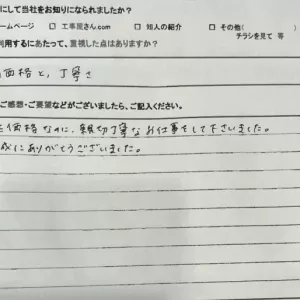 にして当社をお知りになられましたか？
ームページ ☑ 工事屋さん.com □ 知人の紹介 □ その他(
チラシを見て 等
利用するにあたって、重視した点はありますか？
価格と、丁寧さ
ご感想・ご要望などがございましたら、ご記入ください。
価格なのに、親切丁寧なお仕事をして下さいました。
にありがとうございました。